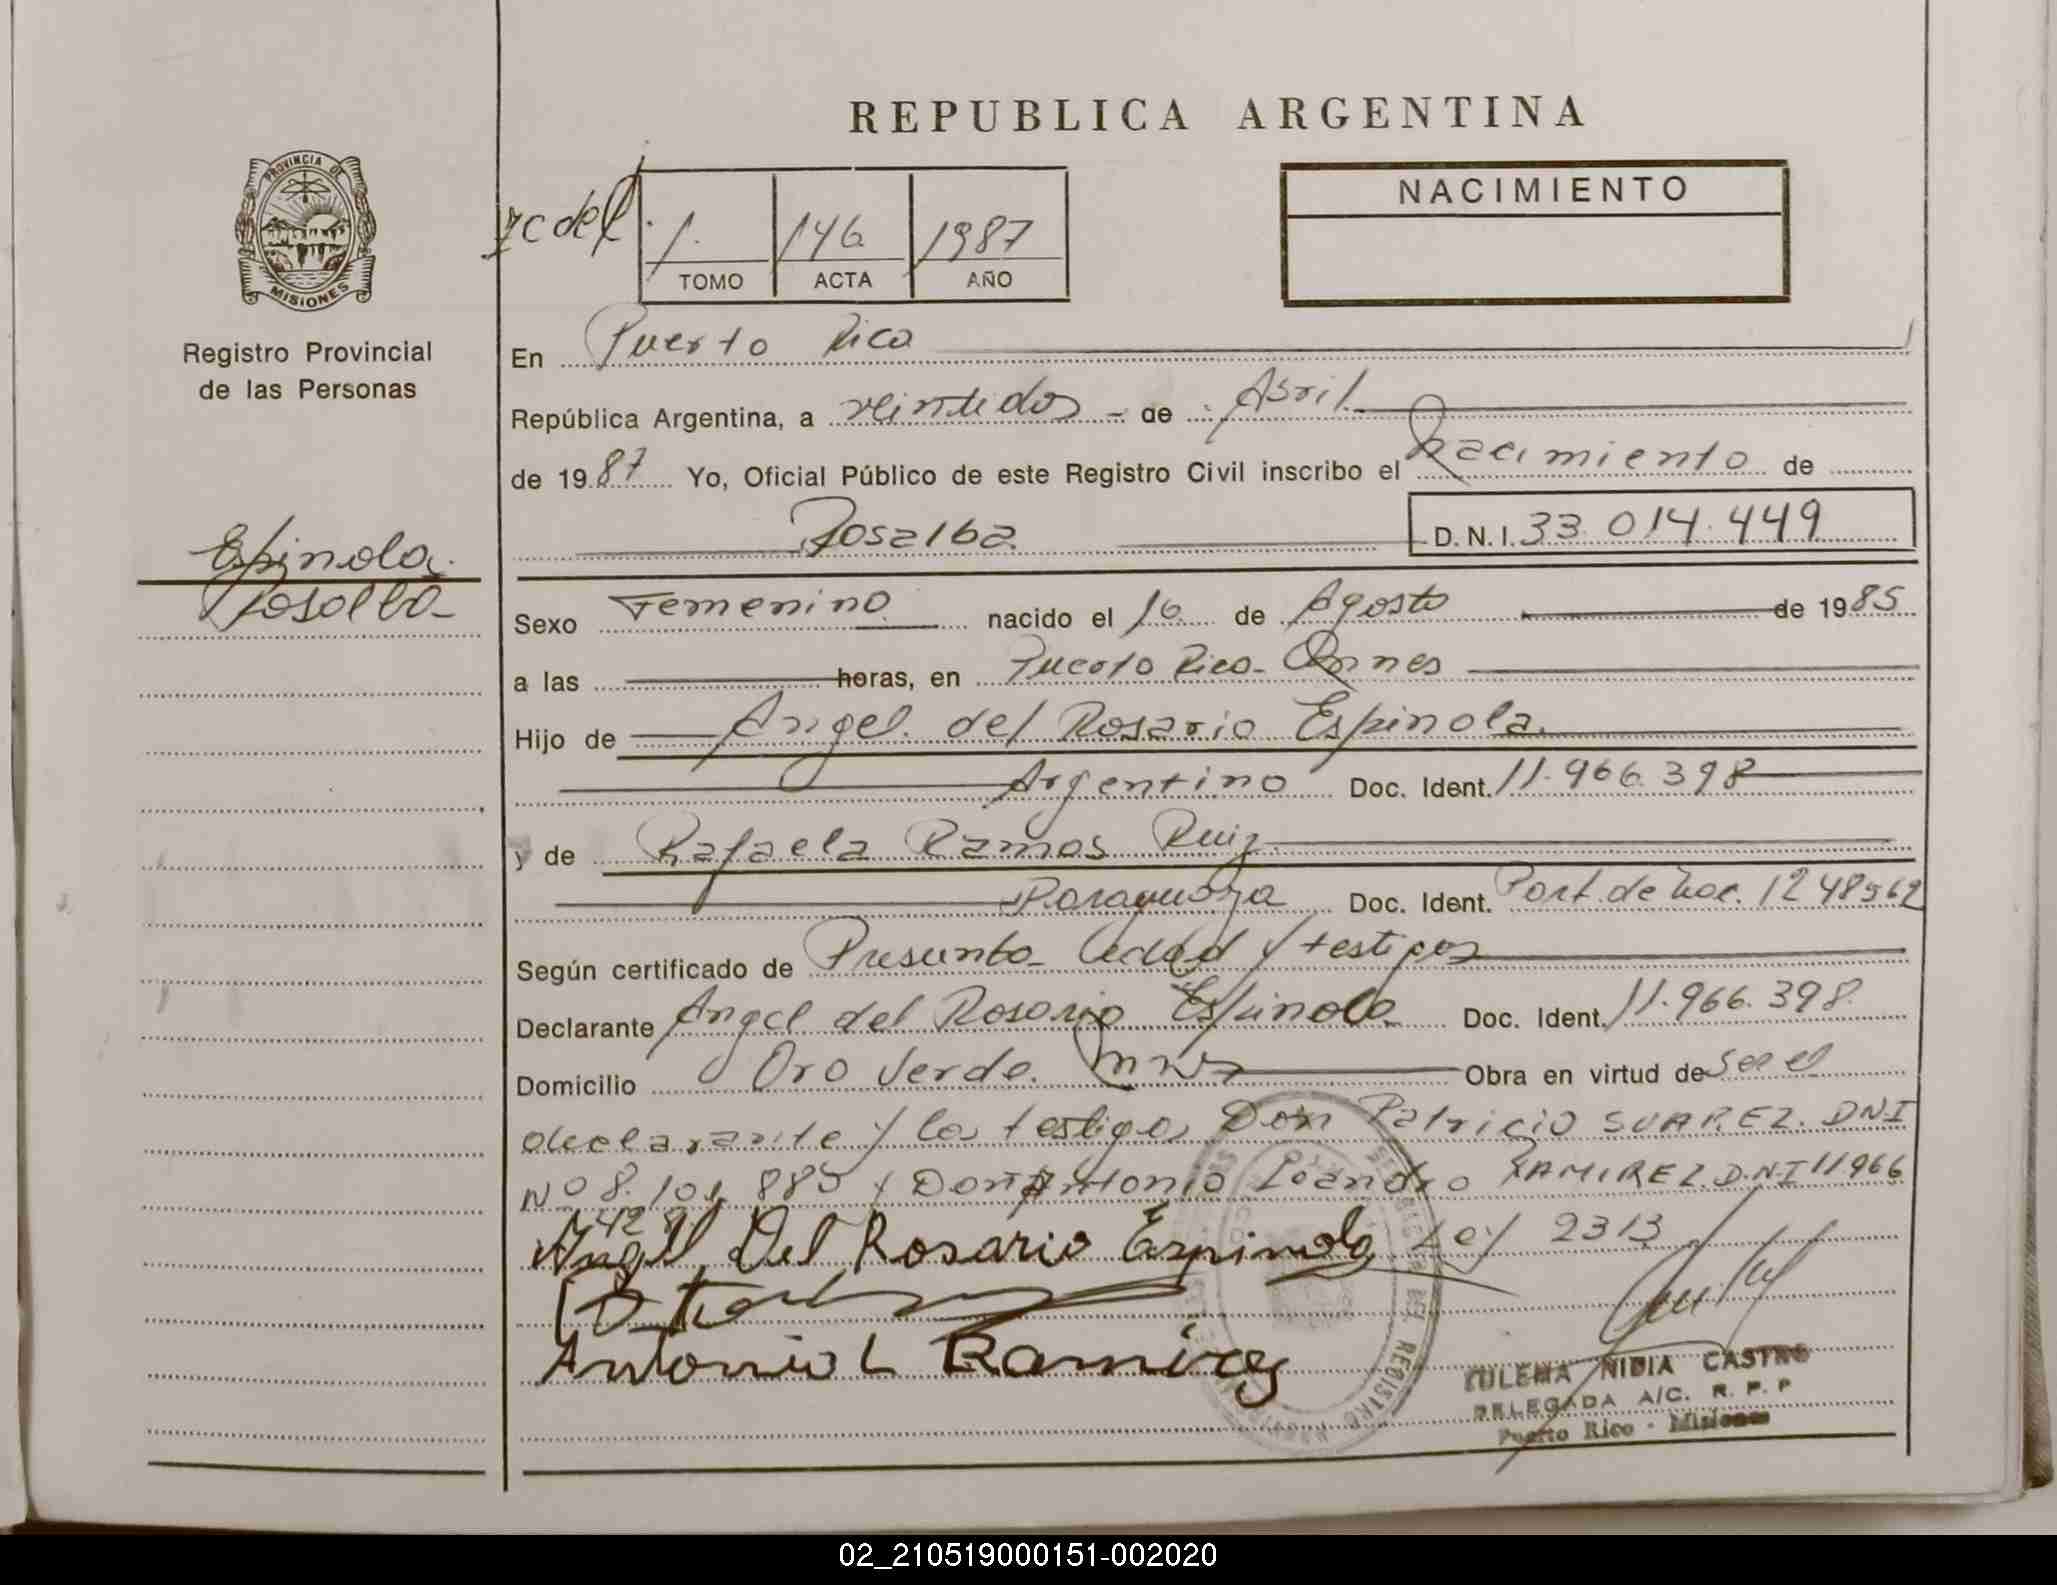 REPUBLICA ARGENTINA
PROVINCIA DE
MISIONES
Registro Provincial
de las Personas
1. 146 1987
TOMO ACTA AÑO
NACIMIENTO
En Puerto Rico
República Argentina, a veintidos - de Abril
de 1987 Yo, Oficial Público de este Registro Civil inscribo el Nacimiento de
Rosalba
D.N.I. 33.014.449
Espinola
Rosalba
Sexo Femenino nacido el 16 de Agosto de 1985
a las horas, en Puerto Rico -
Hijo de Angel del Rosario Espinola
Argentino Doc. Ident. 11.966.398
y de Rafaela Ramos Ruiz
Paraguaya Doc. Ident. 1248562
Según certificado de Presunta edad y testigos
Declarante Angel del Rosario Espinola Doc. Ident. 11.966.398
Domicilio Oro Verde. Obra en virtud de Ser el
declarante y los testigos Don Patricio SUAREZ. DNI
Nº 8.101.885 y Don Antonio Leandro RAMIREZ. D.N.I 11966
742 Ley 2313
Angel Del Rosario Espinola
Antonio L Ramirez
ZULEMA NIDIA CASTRO
DELEGADA A/C. R. P. P
Puerto Rico - Misiones
02_210519000151-002020